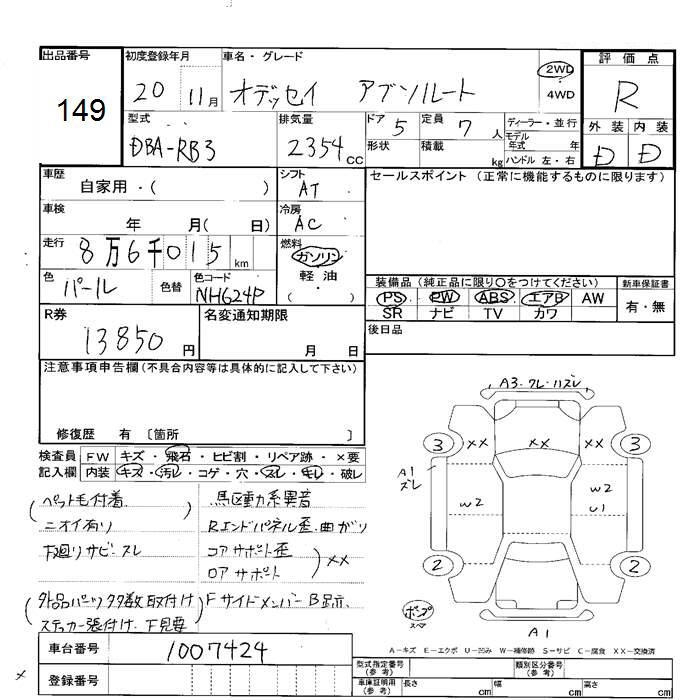 出品番号
149
初度登録年月
20 11月
車名・グレード
オデッセイ アブソルート
2WD
4WD
評価点
R
外装 内装
D D
型式
DBA-RB3
排気量
2354 cc
ドア 5
形状
定員 7 人
積載 kg
ディーラー・並行
モデル年式 年
ハンドル 左・右
車歴
自家用・( )
シフト
AT
セールスポイント (正常に機能するものに限ります)
車検
年 月( 日)
冷房
AC
走行
8万6千015 km
燃料
ガソリン
軽油
( ・ )
色
パール
色替
色コード
NH624P
装備品 (純正品に限り○をつけてください)
PS PW ABS エアB AW
SR ナビ TV カワ
新車保証書
有・無
R券
13850 円
名変通知期限
月 日
後日品
注意事項申告欄 (不具合内容等は具体的に記入して下さい)
修復歴 有 〔箇所 〕
検査員記入欄
FW キズ・飛石・ヒビ割・リペア跡・×要
内装 キズ・汚レ・コゲ・穴・スレ・キレ・破レ
ペット毛付着
ニオイ有り
下廻りサビ・スレ
外品パーツ多数取付け
ステッカー張付け・下見要
馬区動系異音
Rエンドパネル歪・曲がり
コアサポート歪
ロアサポート
××
Fサイドメンバー B跡
A3・ワレ・ハズレ
3 ×× ×× ×× 3
A1
ズレ
W2
W2
U1
2 2
ポンプ
スペア
A1
A-キズ E-エクボ U-凹み W-補修跡 S-サビ C-腐食 XX-交換済
車台番号
1007424
登録番号
型式指定番号
(参考)
類別区分番号
(参考)
車庫証明用
(参考)
長さ cm
幅 cm
高さ cm
×